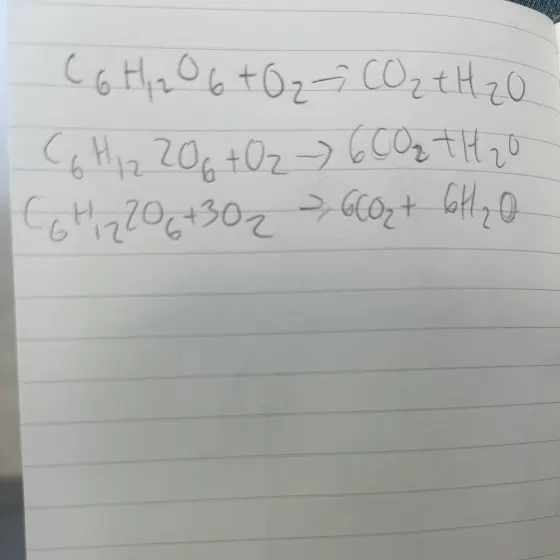 C₆H₁₂O₆+O₂→CO₂+H₂O
C₆H₁₂2O₆+O₂→6CO₂+H₂O
C₆H₁₂2O₆+3O₂→6CO₂+6H₂O